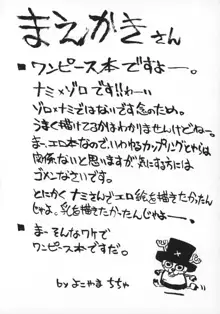 まえがきさん
■ワンピース本ですよー。
ナミ×ゾロです!!わーい
ゾロ×ナミではないです念のため。
うまく描けてるかはわかりませんけどねー。
まーエロ本なので、いわゆるカップリングとやらは
関係ないと思いますが気にする方には
ゴメンなさいです。
とにかくナミさんでエロ絵を描きたかったん
じゃよ。乳を描きたかったんじゃよー
■まーそんなワケで
ワンピース本ですだ。
by よこやま ちちゃ